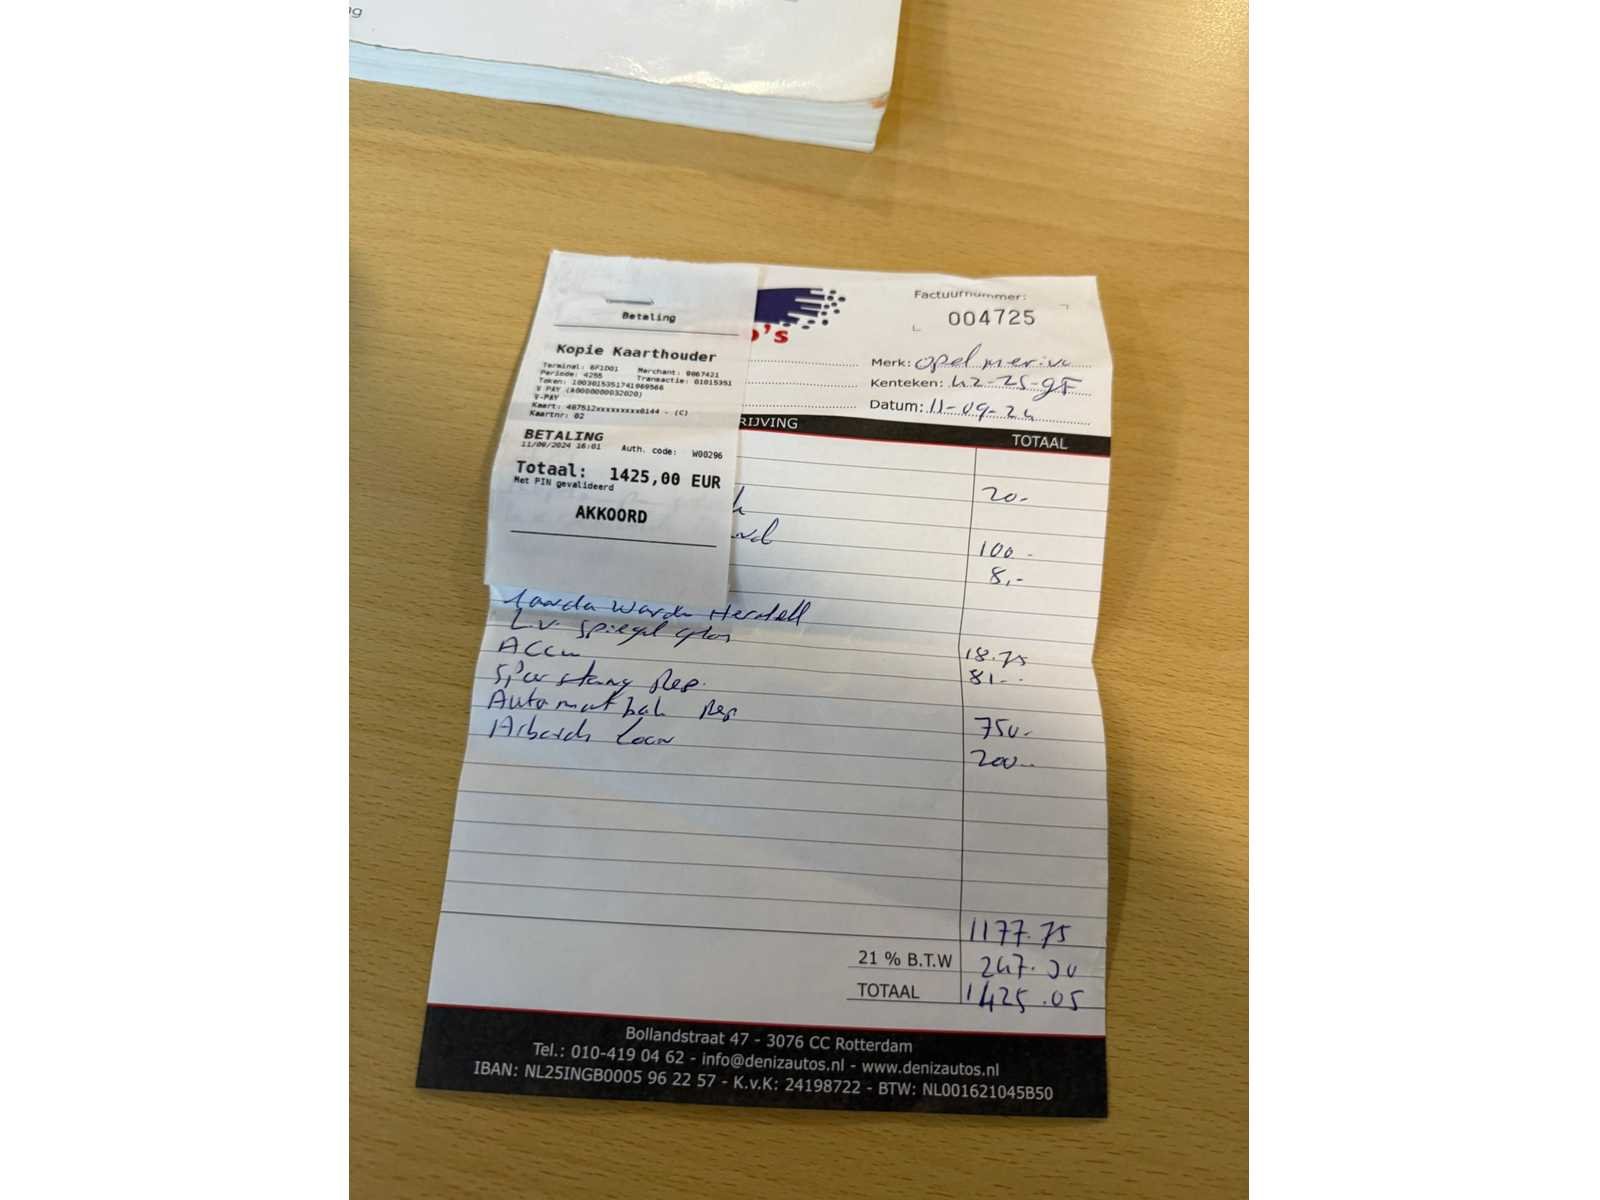 ng
Betaling
Kopie Kaarthouder
Terminal: 6F1D01 Merchant: 9067421
Periode: 4255 Transactie: 01015351
Token: 1003015351741069566
V PAY (A0000000032020)
V-PAY
Kaart: 487512xxxxxxxxx0144 - (C)
Kaartnr: 02
BETALING
11/09/2024 16:01 Auth. code: W00296
Totaal: 1425,00 EUR
Met PIN gevalideerd
AKKOORD
o's
Factuurnummer:
004725
Merk: opel meriva
Kenteken: 42-25-gF
Datum: 11-09-24
RIJVING TOTAAL
20.-
100.-
8,-
Herstell
L.V. spiegel glas 18.75
ACCU 81.-
stang Rep.
Automat bak Rep 750.-
Arbeids loon 200.-
1177.75
21 % B.T.W 247.30
TOTAAL 1425.05
Bollandstraat 47 - 3076 CC Rotterdam
Tel.: 010-419 04 62 - info@denizautos.nl - www.denizautos.nl
IBAN: NL25INGB0005 96 22 57 - K.v.K: 24198722 - BTW: NL001621045B50